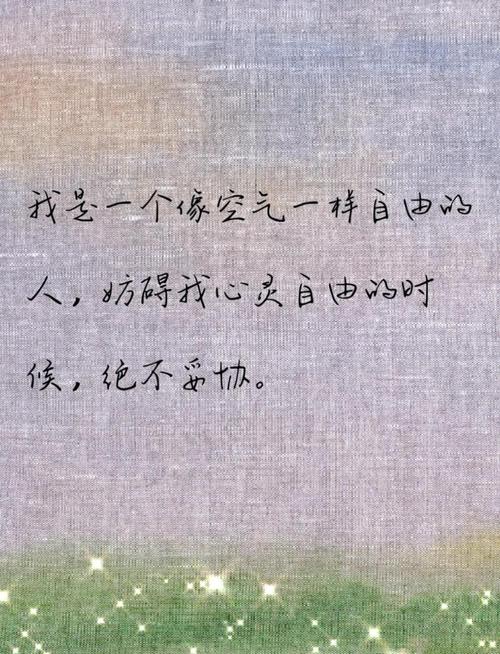 我是一个像空气一样自由的
人，妨碍我心灵自由的时
候，绝不妥协。